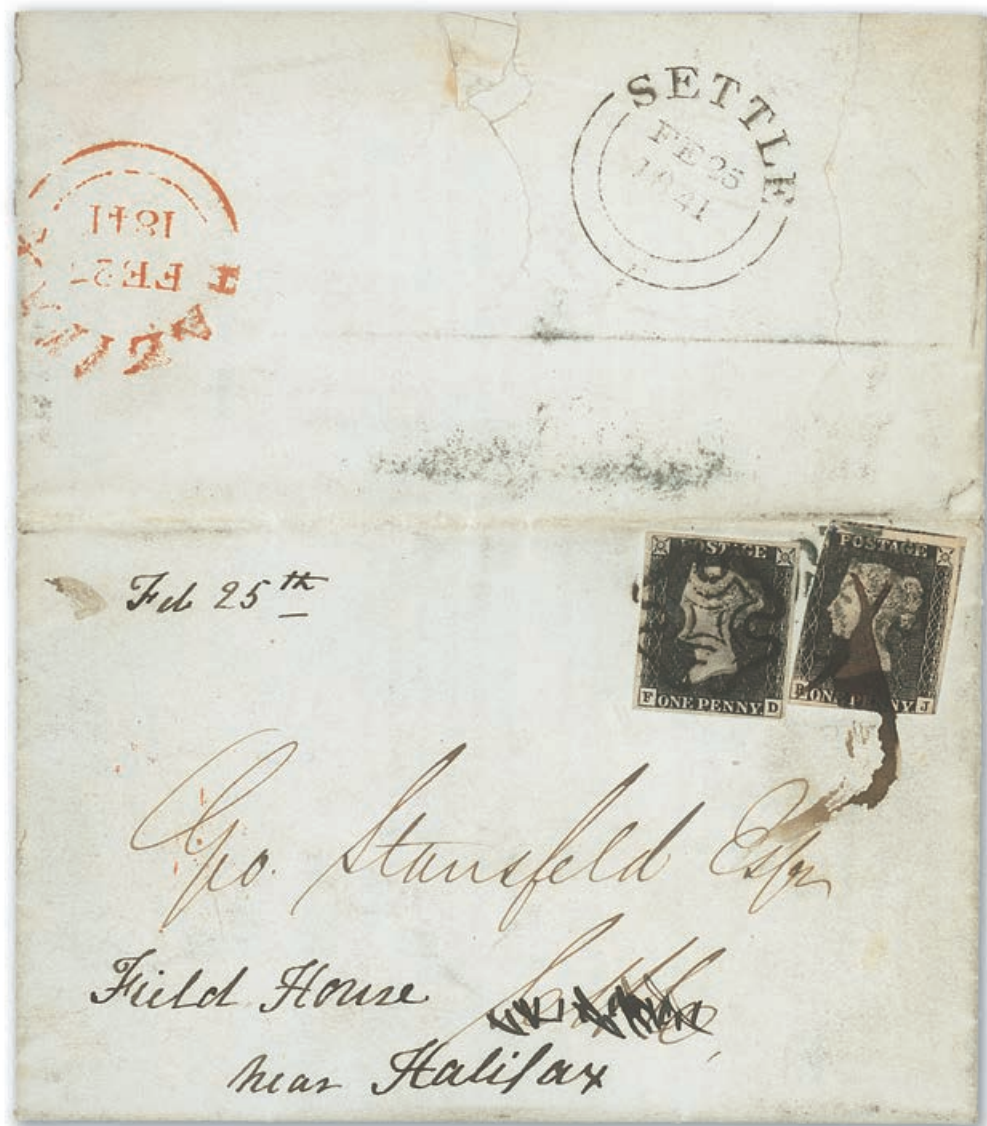 SETTLE
FE 25
1841
HALIFAX
FE 27
1841
Feb 25th
POSTAGE
F ONE PENNY D
POSTAGE
B ONE PENNY J
Geo. Stansfeld Esqr
Settle
Field House
near Halifax